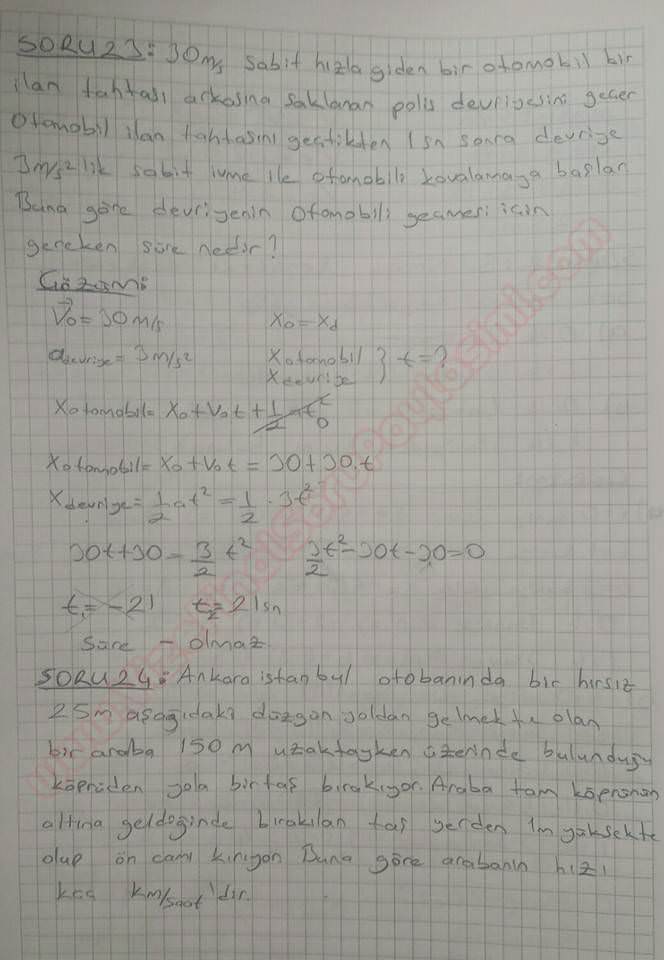 SORU23: 30m/s sabit hızla giden bir otomobil bir
ilan tahtası arkasına saklanan polis devriyesini geçer
Otomobil ilan tahtasını geçtikten 1sn sonra devriye
3m/s² lik sabit ivme ile otomobili kovalamaya başlar
Buna göre devriyenin otomobili geçmesi için
gereken süre nedir?
Çözüm:
V₀ = 30 m/s x₀ = x_d
a devriye = 3m/s² x otomobil } t = ?
x devriye
x otomobil = x₀ + v₀t + 1/2 at² 0
x otomobil = x₀ + v₀t = 30 + 30.t
x devriye = 1/2 at² = 1/2 . 3t²
30t+30 = 3/2 t² 3/2 t² - 30t - 30 = 0
t₁ = -21 t₂ = 21sn
süre - olmaz
SORU24: Ankara istanbul otobanında bir hırsız
25m aşağıdaki düzgün yoldan gelmekte olan
bir araba 150 m uzaktayken üzerinde bulunduğu
köprüden yola bir taş bırakıyor. Araba tam köprünün
altına geldiğinde bırakılan taş yerden 1m yüksekte
olup ön camı kırıyor Buna göre arabanın hızı
kaç km/saat'dir.